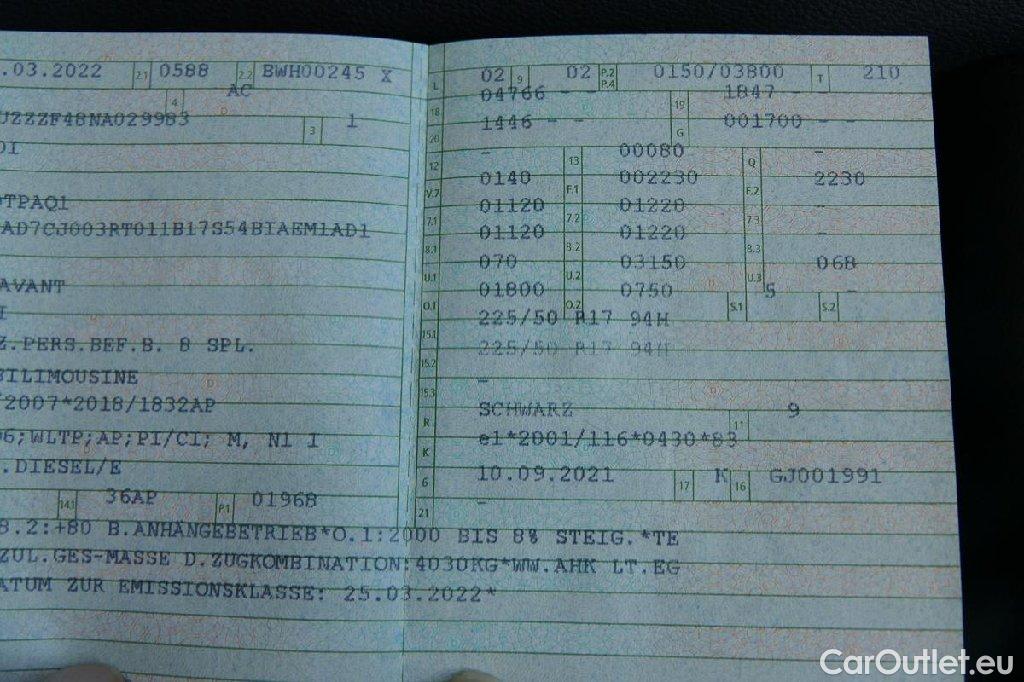 .03.2022 2.1 0588 2.2 BWH00245 X
4 AC
UZZZF48NA029983 3 1
DI
OTPAQ1
AD7CJ003RT011B17S54BIAEM1AD1
AVANT
I
Z.PERS.BEF.B. 8 SPL.
BILIMOUSINE
/2007*2018/1832AP
06;WLTP;AP;PI/CI; M, N1 I
.DIESEL/E
14.1 36AP P.1 01968
L 02 9 02 P.2 P.4 0150/03800 T 210
18 04766 - - 19 1847 -
20 1446 - - G 001700 - -
12 - 13 00080 Q -
V.7 0140 F.1 002230 F.2 2230
7.1 01120 7.2 01220 7.3 -
8.1 01120 8.2 01220 8.3 -
U.1 070 U.2 03150 U.3 068
O.1 01800 O.2 0750 S.1 5 S.2 -
15.1 225/50 R17 94H
15.2 225/50 R17 94H
15.3 -
R SCHWARZ 11 9
K e1*2001/116*0430*83
6 10.09.2021 17 K 16 GJ001991
21 -
8.2:+80 B.ANHÄNGEBETRIEB*O.1:2000 BIS 8% STEIG.*TE
ZUL.GES-MASSE D.ZUGKOMBINATION:4030KG*WW.AHK LT.EG
ATUM ZUR EMISSIONSKLASSE: 25.03.2022*
CarOutlet.eu